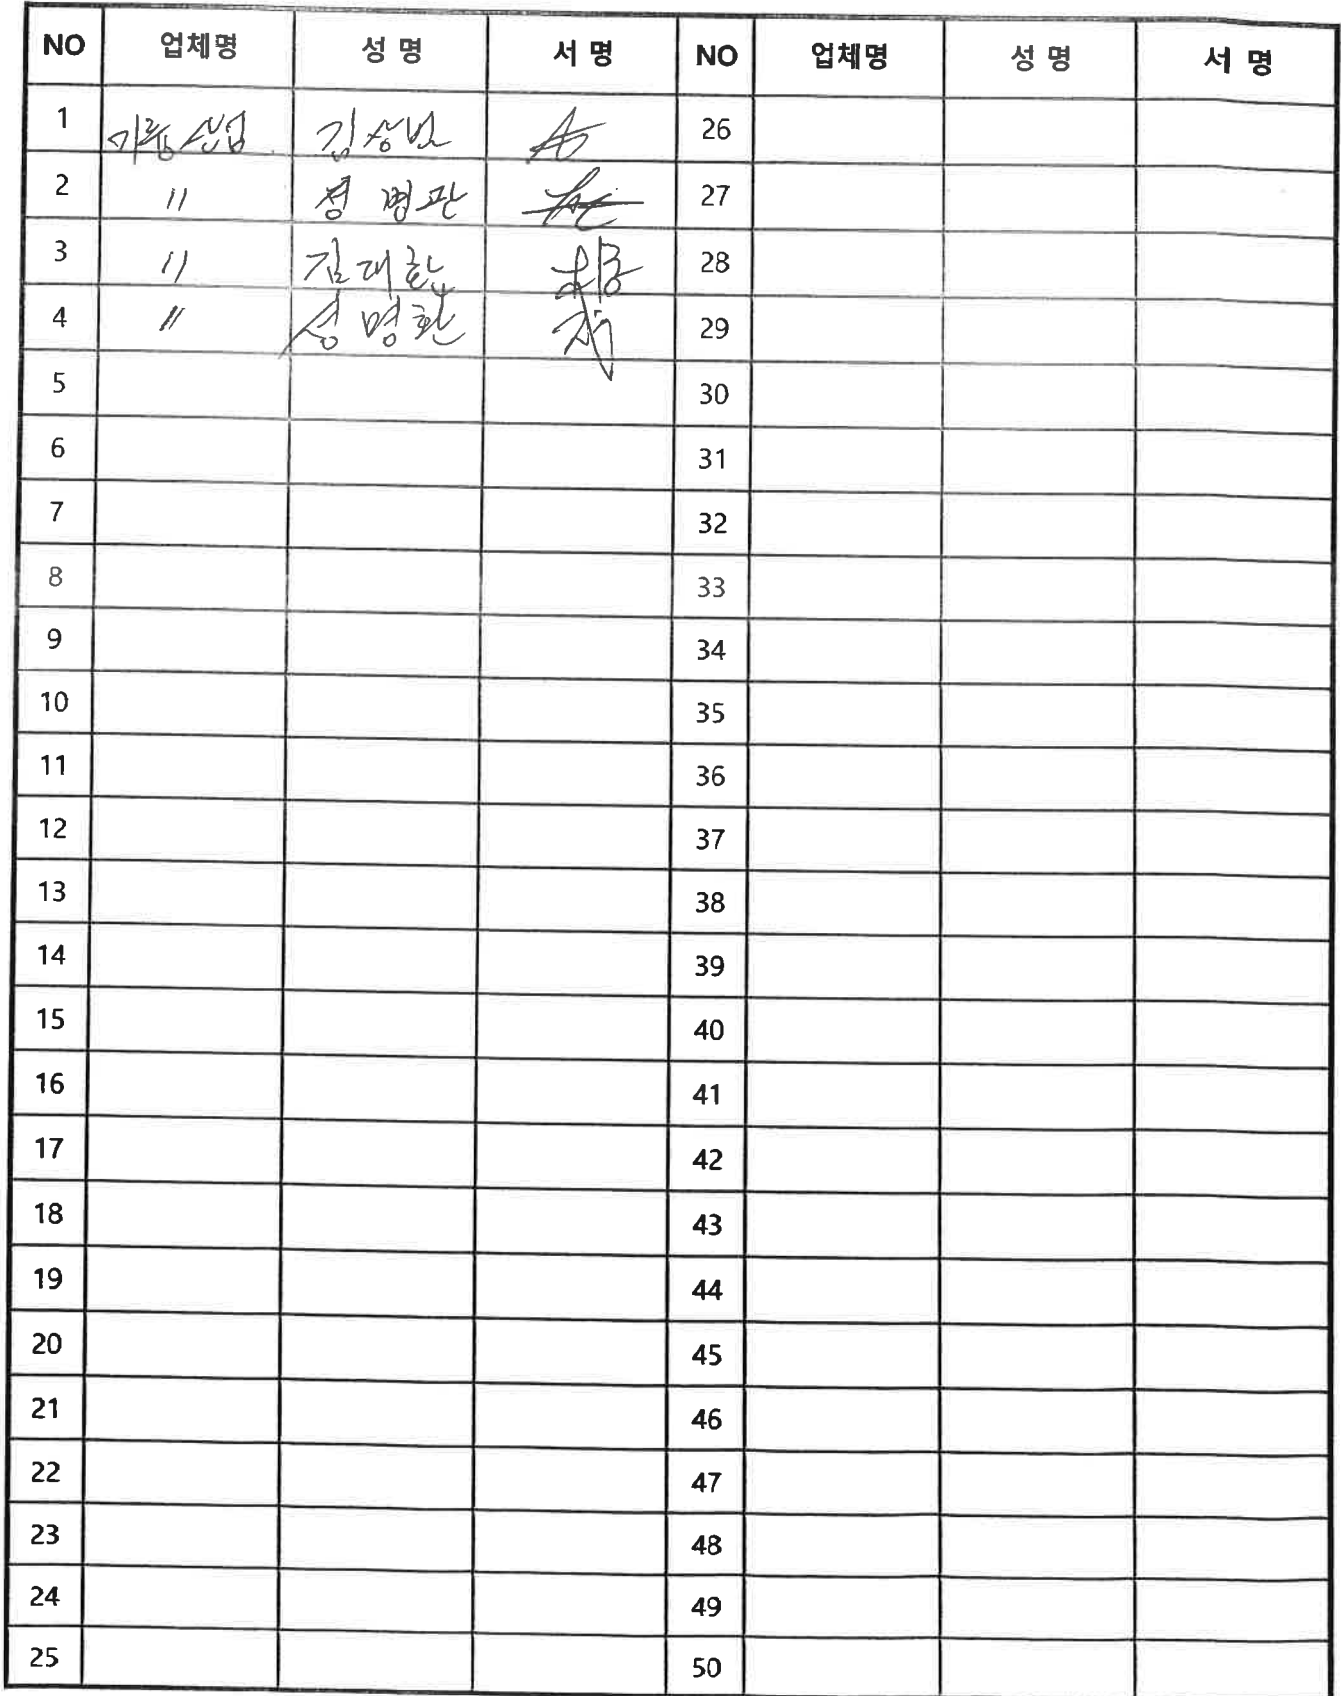 NO 업체명 성 명 서 명 NO 업체명 성 명 서 명
1 미륭산업 김상범 26
2 〃 성명관 27
3 〃 김대환 28
4 〃 성명환 29
5 30
6 31
7 32
8 33
9 34
10 35
11 36
12 37
13 38
14 39
15 40
16 41
17 42
18 43
19 44
20 45
21 46
22 47
23 48
24 49
25 50